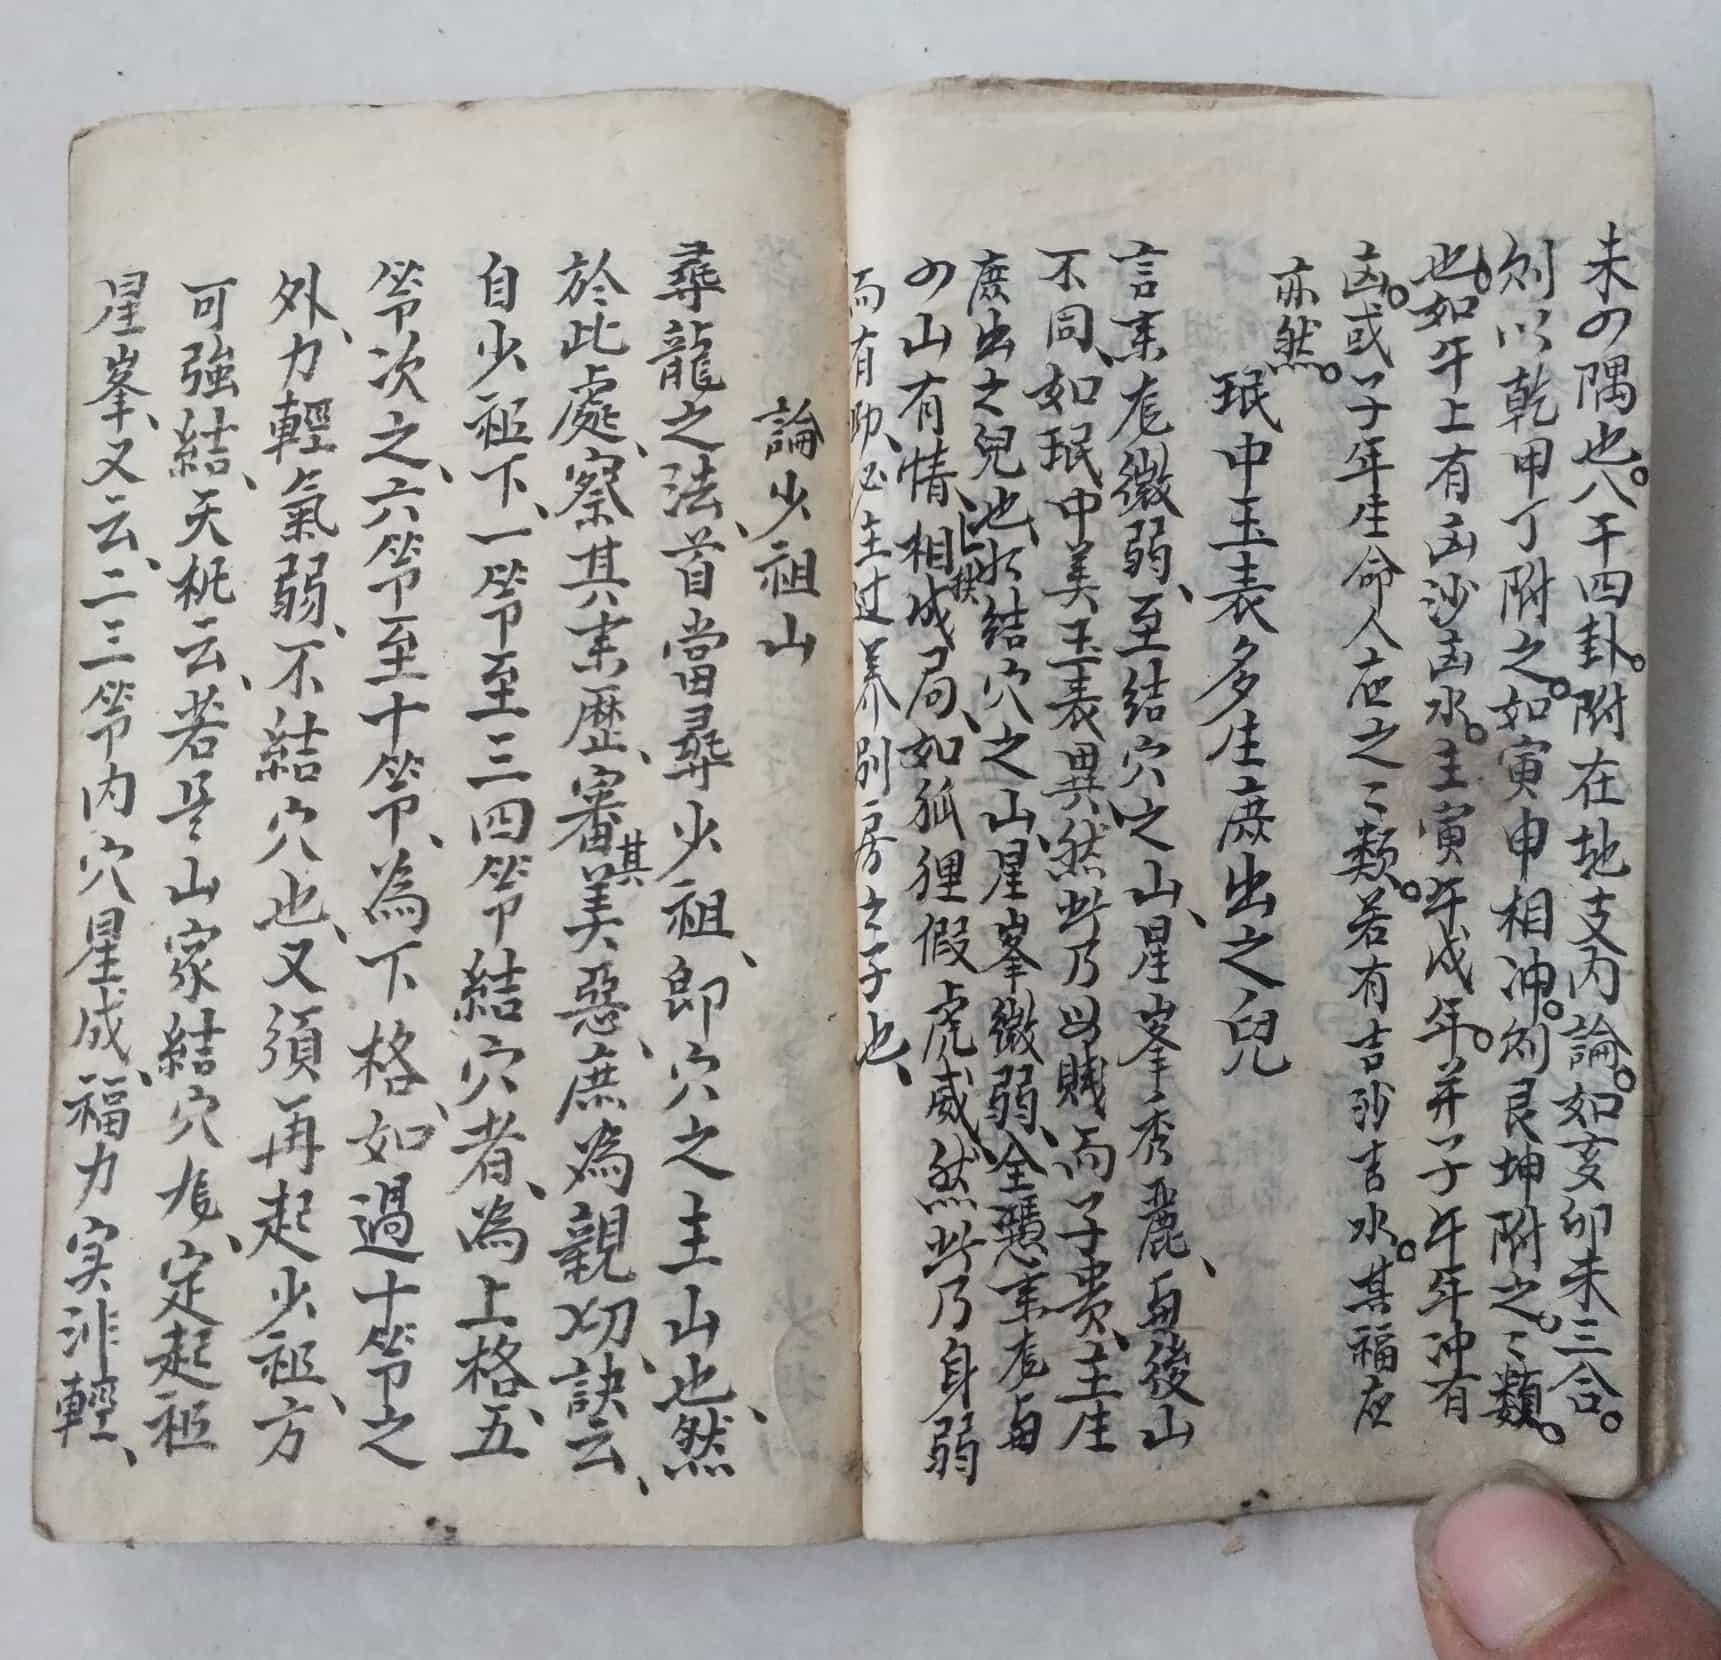 未四隅也。八干四卦。附在地支内論。如亥卯未三合。
則以乾甲丁附之。如寅申相冲。則艮坤附之。〻類。
也。如午上有凶沙凶水。主寅午戌年。并子午年冲有
凶。或子年生命人应之〻類。若有吉沙吉水。其福应
亦然。
珉中玉表多生庶出之兒
言来龙微弱、至結穴之山、星峯秀麗、与後山
不同、如珉中美玉表異、然此乃母賤而子贵、主生
庶出之兒也、結穴之山、星峯微弱、全慿来龙与
四山有情、相成局、如狐狸假虎威、然此乃身弱
而有助、必主过养别房之子也、
論少祖山
尋龍之法、首當尋少祖、即穴之主山也、然
於此處、察其来歷、審其美惡、庶為親切、訣云、
自少祖下、一節至三四節結穴者、為上格、五
節次之、六節至十節、為下格、如過十節之
外、力輕氣弱、不結穴也、又須再起少祖、方
可強結、天机云、若是山家結穴龙、定起祖
星峯、又云、二三節内穴星成、福力实非輕、